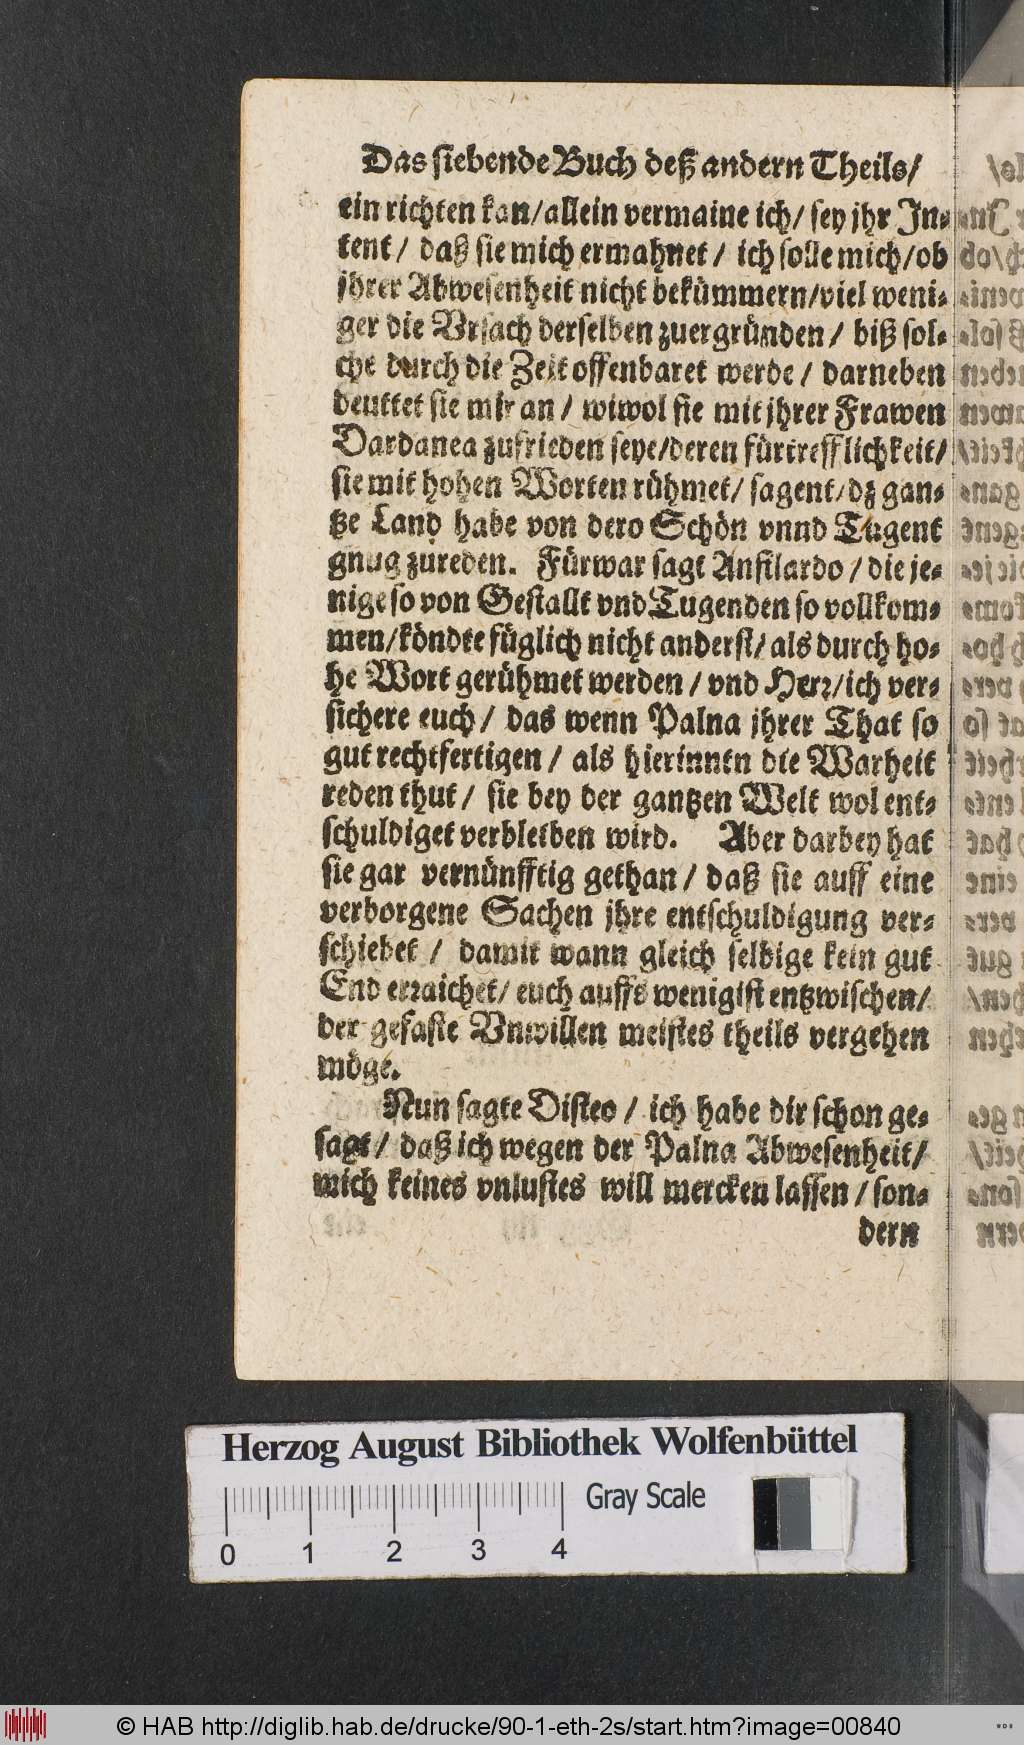 Das siebende Buch deß andern Theils/
ein richten kan/allein vermaine ich/ sey jhr In-
tent/ daß sie mich ermahnet/ ich solle mich/ob
jhrer Abwesenheit nicht bekümmern/viel weni-
ger die Vrsach derselben zuergründen/ biß sol-
che durch die Zeit offenbaret werde/ darneben
deuttet sie mir an/ wiwol sie mit jhrer Frawen
Dardanea zufrieden seye/deren fürtrefflichkeit/
sie mit hohen Worten rühmet/ sagent/dz gan-
tze Land habe von dero Schön vnnd Tugent
gnug zureden. Fürwar sagt Anfilardo/ die je-
nige so von Gestallt vnd Tugenden so vollkom-
men/köndte füglich nicht anderst/ als durch ho-
he Wort gerühmet werden/ vnd Herr/ich ver-
sichere euch/ das wenn Palna jhrer That so
gut rechtfertigen/ als hierinntn die Warheit
reden thut/ sie bey der gantzen Welt wol ent-
schuldiget verbleiben wird. Aber darbey hat
sie gar vernünfftig gethan/ daß sie auff eine
verborgene Sachen jhre entschuldigung ver-
schiebet/ damit wann gleich selbige kein gut
End erraichet/ euch auffs wenigist entzwischen/
der gefaste Vnwillen meistes theils vergehen
möge.
Nun sagte Disteo/ ich habe dir schon ge-
sagt/ daß ich wegen der Palna Abwesenheit/
mich keines vnlustes will mercken lassen/ son-
dern
Herzog August Bibliothek Wolfenbüttel
Gray Scale
0 1 2 3 4
© HAB http://diglib.hab.de/drucke/90-1-eth-2s/start.htm?image=00840